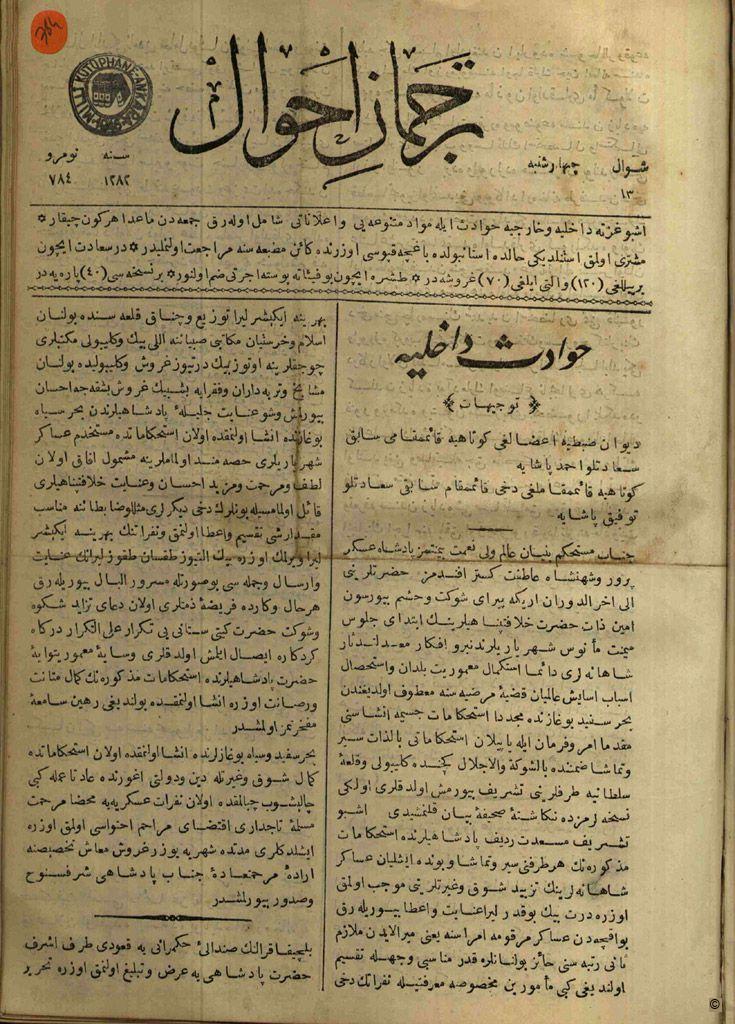 ٧٨٤
MILLI KUTUPHANE-ANKARA
ترجمان احوال
شوال
١٣
چهارشنبه
سنه
١٢٨٢
نومرو
٧٨٤
اشبو غزته داخلیه و خارجیه حوادث ایله مواد متنوعه یی و اعلاناتی شامل اوله رق جمعه دن ماعدا هر کون چیقار *
مشتری اولمق استنلدیکی حالده استانبولده باغچه قپوسی اوزرنده کائن مطبعه سنه مراجعت اولنملیدر * درسعادت ایچون
بر ییللغی (١٢٠) والتی ایلغی (٧٠) غروشه در * طشره ایچون بوفیئاته پوسته اجرتی ضم اولنور * بر نسخه سی (٤٠) پاره یه در
حوادث داخلیه
﴿ توجیهات ﴾
دیوان ضبطیه اعضالغی کوتاهیه قائممقامی سابق
سعادتلو احمد پاشایه
کوتاهیه قائممقاملغی دخی قائممقام سابق سعادتلو
توفیق پاشایه
جناب مستحکم بنیان عالم ولی نعمت بیمنتمز پادشاه عسکر
پرور و شهنشاه عاطفت کستر افندمز حضرتلرینی
الی اخر الدوران اریکه پیرای شوکت و حشم بیورسون
امین ذات حضرت خلافتپناهیلرینک ابتدای جلوس
میمنت مأنوس شهریاریلرندنبرو افکار معدلتدثار
شاهانه لری دائما استکمال معموریت بلدان و استحصال
اسباب اسایش عالمیان قضیۀ مرضیه سنه معطوف اولدیغندن
بحر سفید بوغازنده مجددا استحکامات جسیمه انشاسنی
مقدما امر و فرمان ایله یاپیلان استحکاماتی بالذات سیر
و تماشا ضمننده بالشوکة والاجلال کچنده کلیبولی و قلعۀ
سلطانیه طرفلرینی تشریف بیورمش اولدقلری اولکی
نسخه لرمزده نکاشتۀ صحیفۀ بیان قلنمشیدی اشبو
تشریف مسعدت ردیف پادشاهیلرنده استحکامات
مذکوره نک هر طرفنی سیر و تماشا و بونده ایشلیان عساکر
شاهانه لرینک تزیید شوق و غیرتلرینی موجب اولمق
اوزره درت بیک بوقدر لیرا عنایت و اعطا بیوریله رق
بو اقچه دن عساکر مرقومه امراسنه یعنی میرالایدن ملازم
ثانی رتبه سنی حائز بولنانلره قدر مناسبی وجهله تقسیم
اولندیغی کبی مأمورین مخصوصه معرفتیله نفراتک دخی
بهرینه ایکیشر لیرا توزیع و چناق قلعه سنده بولنان
اسلام و خرستیان مکاتبی صبیاننه اللی بیک و کلیبولی مکتبلری
چوجقلرینه اوتوز بیک درتیوز غروش و کلیبولیده بولنان
مشایخ و تربه داران و فقرایه بشبیک غروش بشقه جه احسان
بیورلمش و شو عنایت جلیلۀ پادشاهیلرندن بحر سیاه
بوغازنده انشا اولنمقده اولان استحکاماتده مستخدم عساکر
شهریاریلری حصه مند اولماملرینه مشمول افاق اولان
لطف و مرحمت و مزید احسان و عنایت خلافتپناهیلری
قائل اولمامسیله بونلرک دخی دیکرلری مثللو ضابطاننه مناسب
مقداری تقسیم و اعطا اولنمق و نفراتنک بهرینه ایکیشر
لیرا ویرلمک اوزره بیک التیوز طقسان طقوز لیرانک عنایت
و ارسال و جمله سی بو صورتله مسرور البال بیوریله رق
هر حال و کارده فریضۀ ذمتلری اولان دعای تزاید شکوه
و شوکت حضرت کیتی ستانی یی تکرار علی التکرار درکاه
کردکاره ایصال ایلمش اولدقلری و سایۀ معموریتوایۀ
حضرت پادشاهیلرنده استحکامات مذکوره نک کمال متانت
و رصانت اوزره انشا اولنمقده بولندیغی رهین سامعۀ
مفخرتمز اولمشدر
بحر سفید و سیاه بوغازلرنده انشا اولنمقده اولان استحکاماتده
کمال شوق و غیرتله دین و دولتی اغورنده عادتا عمله کبی
چالیشوب چبالامقده اولان نفرات عسکریه یه محضا مرحمت
مسیلۀ تاجداری اقتضای مراحم احتواسی اولمق اوزره
ایشلدکلری مدتده شهریه یوزر غروش معاش تخصیصنه
ارادۀ مرحمتعادۀ جناب پادشاهی شرفسنوح
و صدور بیورلمشدر
بلچیقا قرالنک صندالئ حکمرانی یه قعودی طرف اشرف
حضرت پادشاهی یه عرض و تبلیغ اولنمق اوزره تحریر